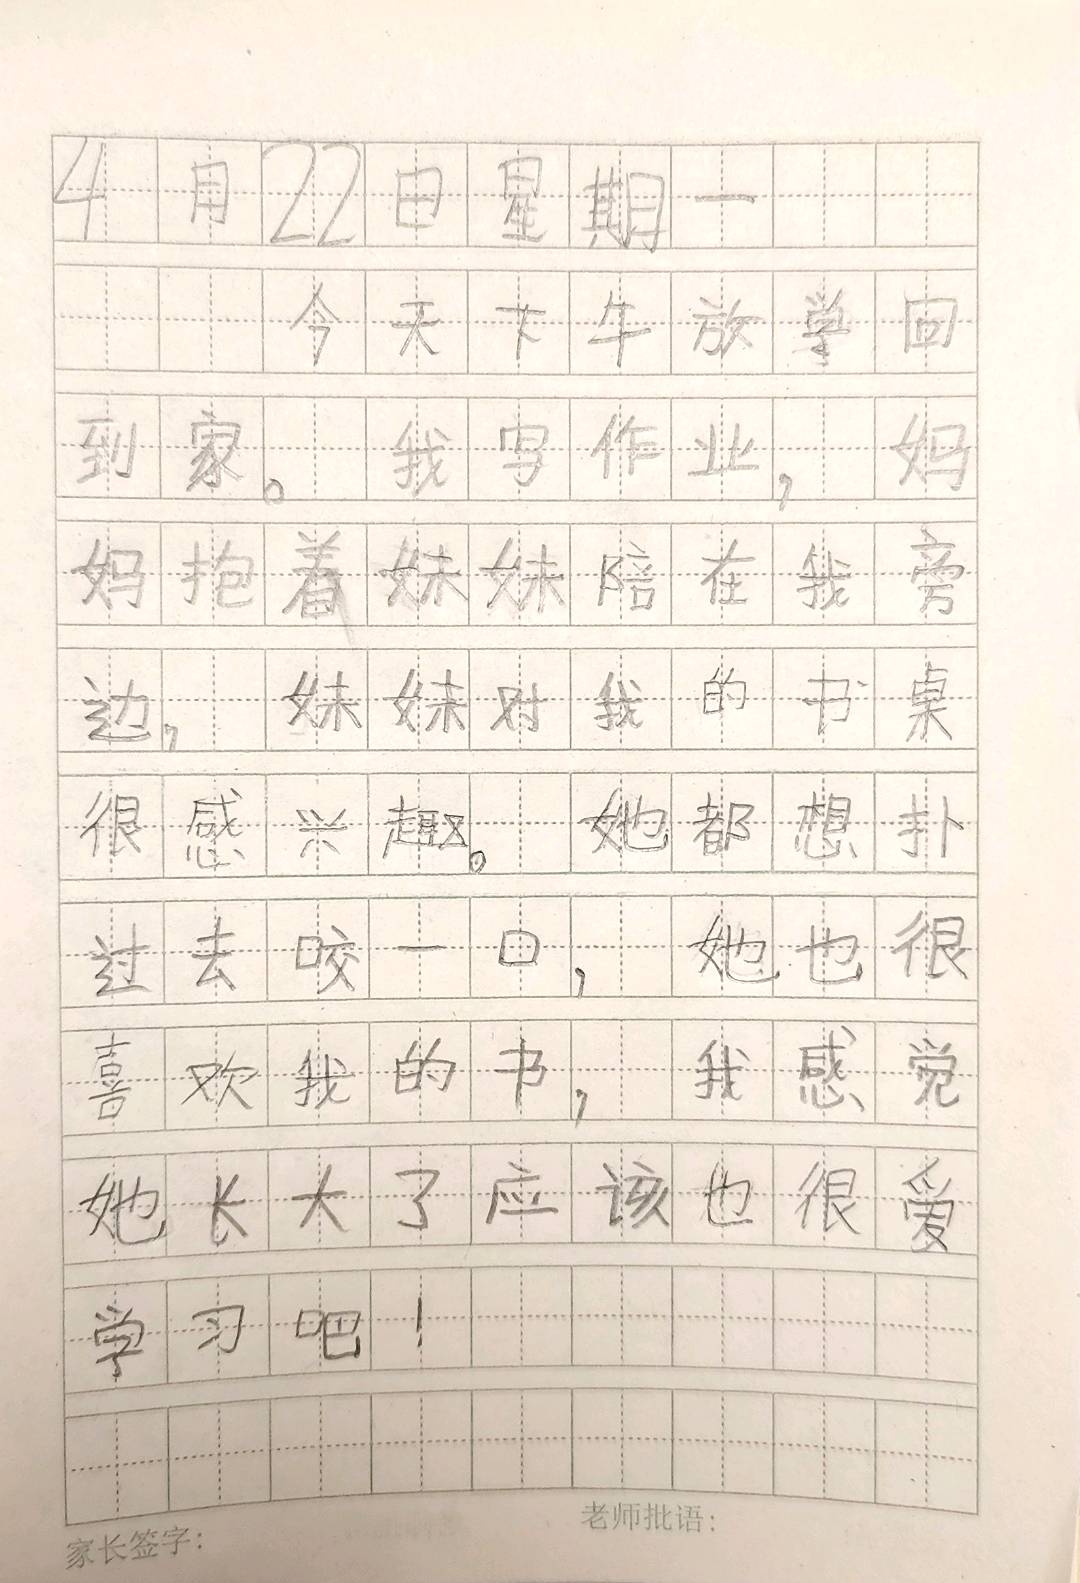 4月22日星期一
今天下午放学回
到家。我写作业，妈
妈抱着妹妹陪在我旁
边，妹妹对我的书桌
很感兴趣。她都想扑
过去咬一口，她也很
喜欢我的书，我感觉
她长大了应该也很爱
学习吧！
老师批语：
家长签字：